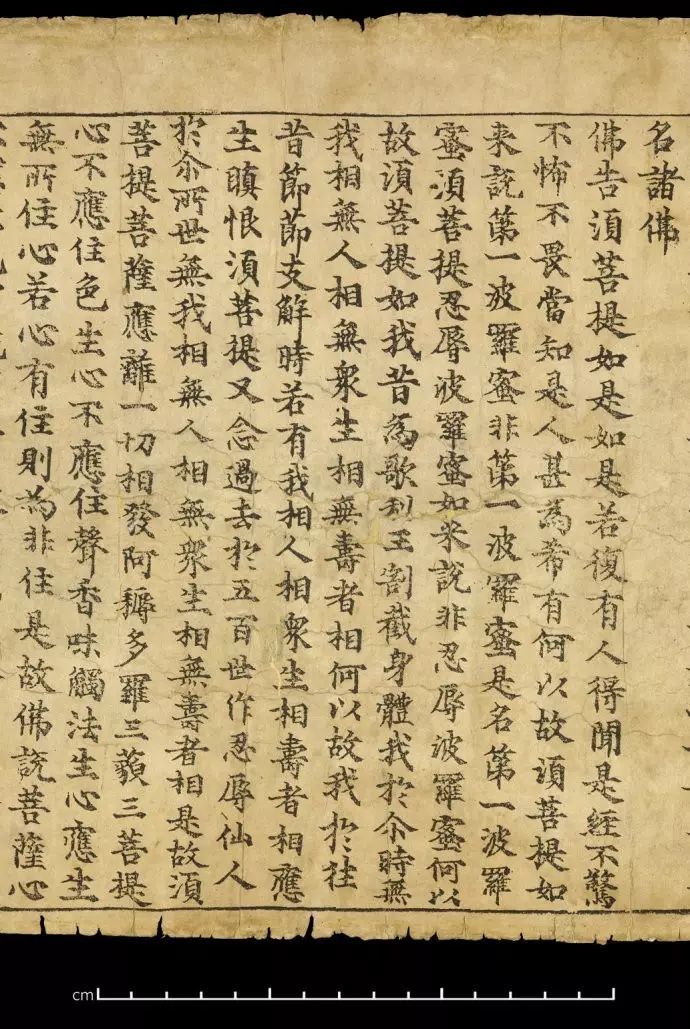 名諸佛
佛告須菩提如是如是若復有人得聞是經不驚
不怖不畏當知是人甚為希有何以故須菩提如
来說第一波羅蜜非第一波羅蜜是名第一波羅
蜜須菩提忍辱波羅蜜如来說非忍辱波羅蜜何以
故須菩提如我昔為歌利王割截身體我於尒時無
我相無人相無衆生相無壽者相何以故我於往
昔節節支解時若有我相人相衆生相壽者相應
生瞋恨須菩提又念過去於五百世作忍辱仙人
於尒所世無我相無人相無衆生相無壽者相是故須
菩提菩薩應離一切相發阿耨多羅三藐三菩提
心不應住色生心不應住聲香味觸法生心應生
無所住心若心有住則為非住是故佛說菩薩心
cm